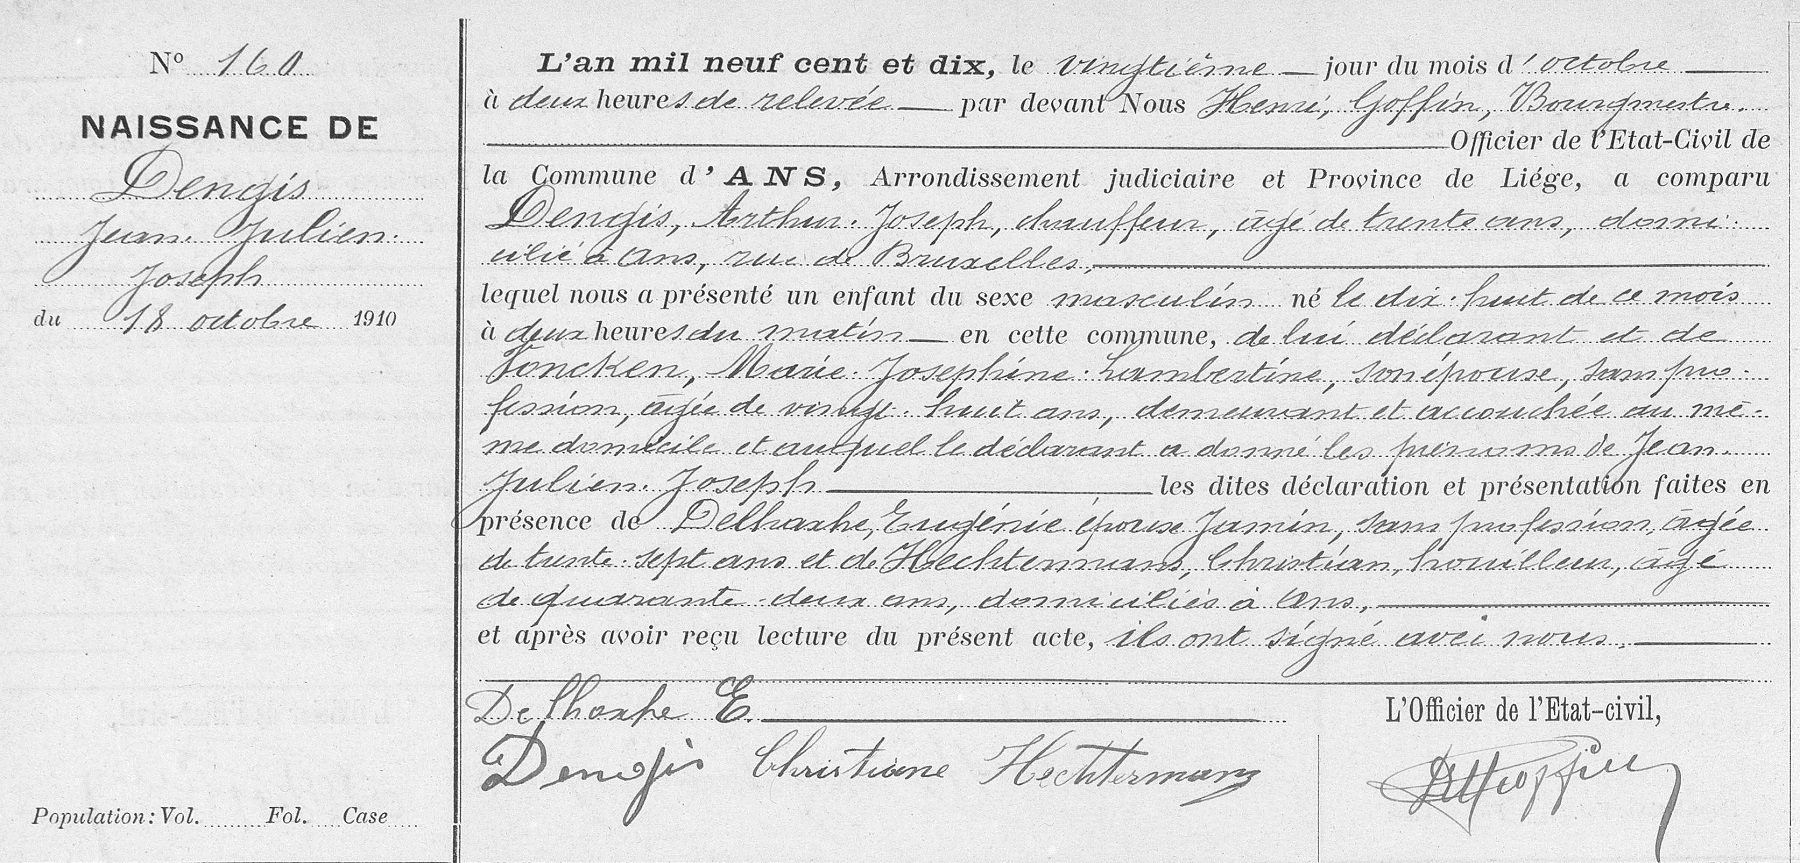 N° 160
NAISSANCE DE
Dengis
Jean. Julien.
Joseph
du 18 octobre 1910
Population: Vol. Fol. Case
L'an mil neuf cent et dix, le vingtième jour du mois d'octobre
à deux heures de relevée par devant Nous Henri, Goffin, Bourgmestre.
Officier de l'Etat-Civil de
la Commune d'ANS, Arrondissement judiciaire et Province de Liége, a comparu
Dengis, Arthur. Joseph, chauffeur, âgé de trente ans, domi-
cilié à Ans, rue de Bruxelles,
lequel nous a présenté un enfant du sexe masculin né le dix-huit de ce mois
à deux heures du matin en cette commune, de lui déclarant et de
Voncken, Marie. Josephine. Lambertine, son épouse, sans pro-
fession, âgée de vingt-huit ans, demeurant et accouchée au mê-
me domicile et auquel le déclarant a donné les prénoms de Jean.
Julien. Joseph les dites déclaration et présentation faites en
présence de Delhaxhe, Eugénie épouse Jamin, sans profession, âgée
de trente-sept ans et de Hechtermans, Christian, houilleur, âgé
de quarante-deux ans, domiciliés à Ans,
et après avoir reçu lecture du présent acte, ils ont signé avec nous.
Delhaxhe E.
L'Officier de l'Etat-civil,
Dengis Christiane Hechtermanz
HGoffin